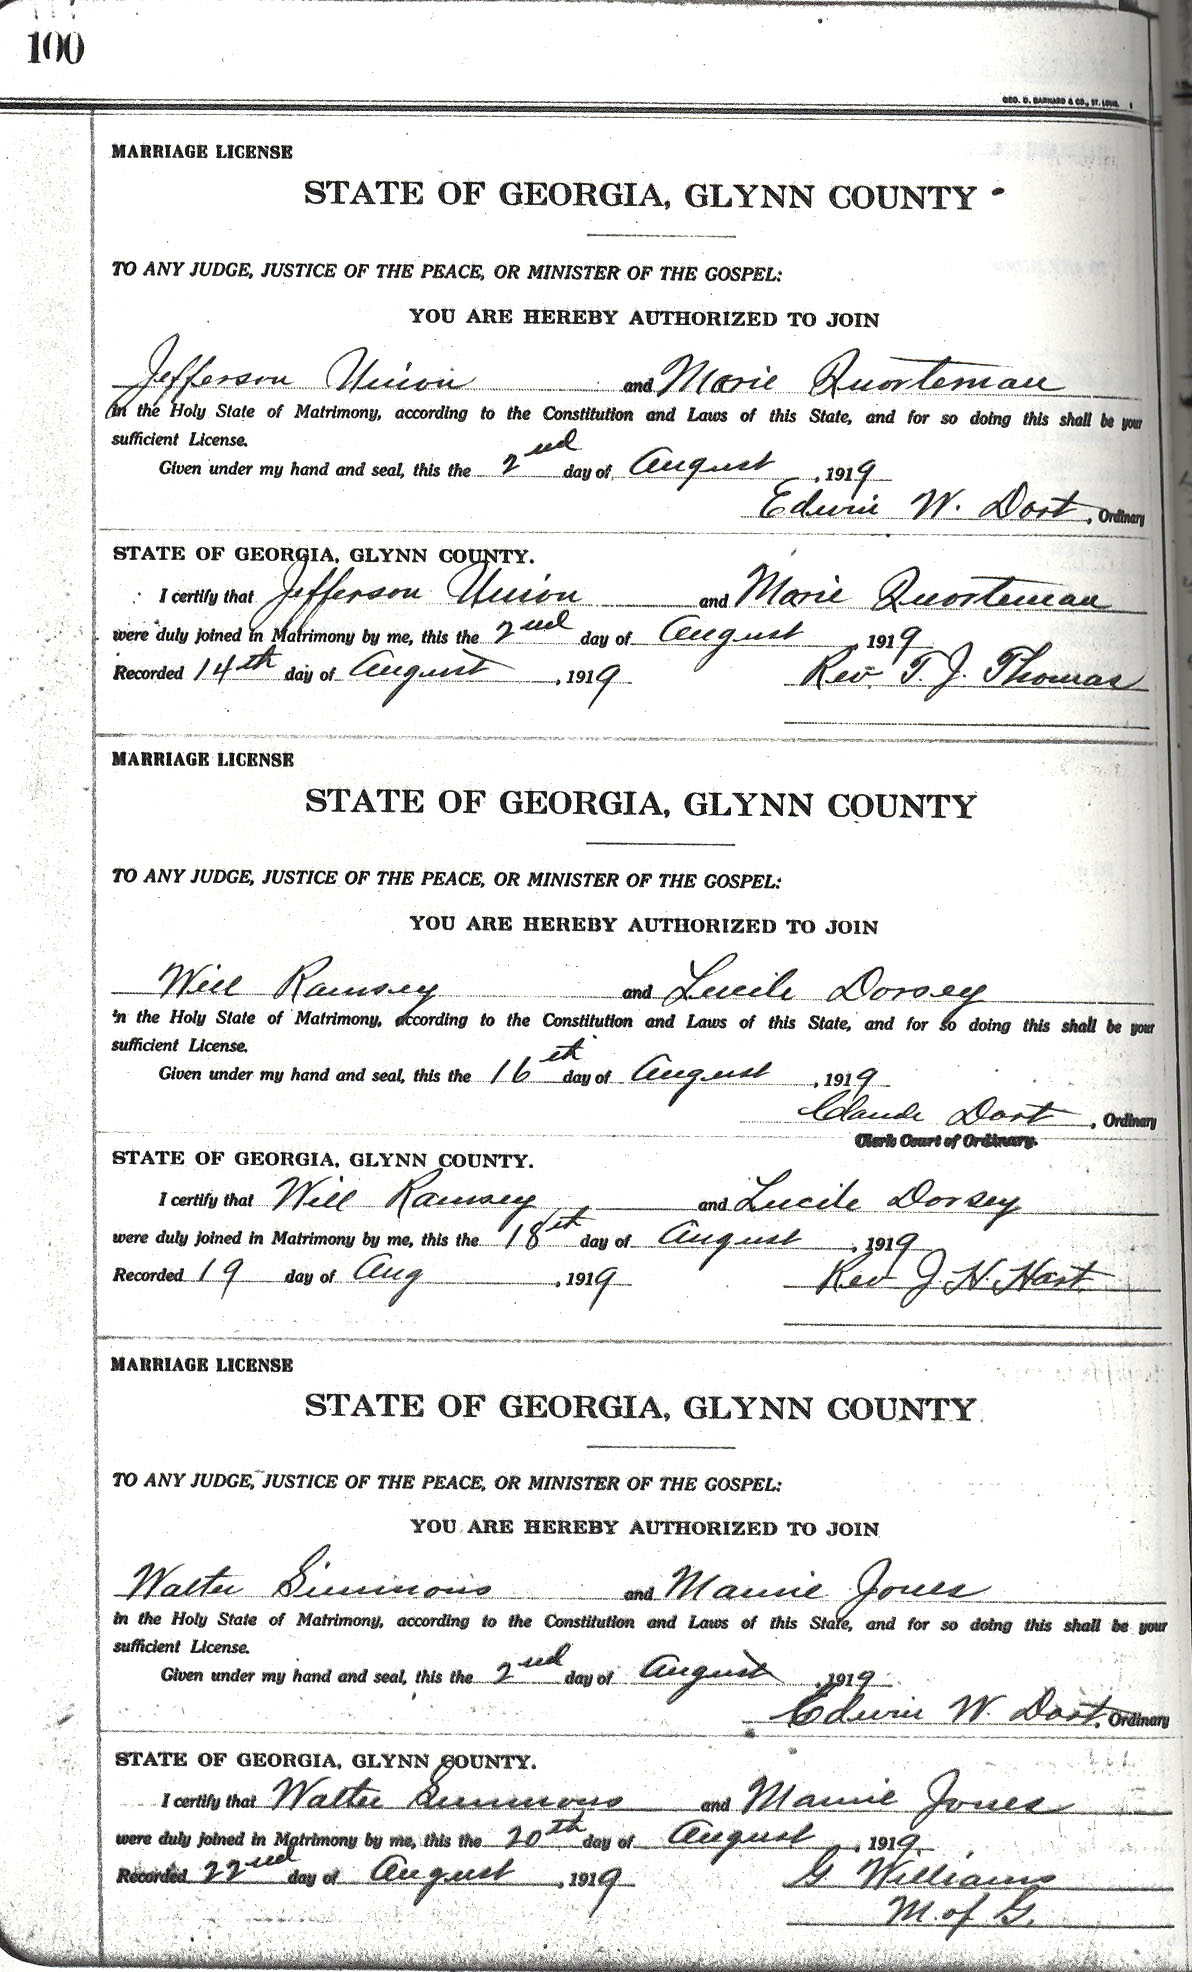 100
GEO. D. BARNARD & CO., ST. LOUIS.
MARRIAGE LICENSE
STATE OF GEORGIA, GLYNN COUNTY
TO ANY JUDGE, JUSTICE OF THE PEACE, OR MINISTER OF THE GOSPEL:
YOU ARE HEREBY AUTHORIZED TO JOIN
Jefferson Union and Marie Quarteman
in the Holy State of Matrimony, according to the Constitution and Laws of this State, and for so doing this shall be your
sufficient License.
Given under my hand and seal, this the 2nd day of August, 1919
Edwin W. Dart, Ordinary
STATE OF GEORGIA, GLYNN COUNTY.
I certify that Jefferson Union and Marie Quarteman
were duly joined in Matrimony by me, this the 2nd day of August, 1919
Recorded 14th day of August, 1919 Rev. T. J. Thomas
MARRIAGE LICENSE
STATE OF GEORGIA, GLYNN COUNTY
TO ANY JUDGE, JUSTICE OF THE PEACE, OR MINISTER OF THE GOSPEL:
YOU ARE HEREBY AUTHORIZED TO JOIN
Will Ramsey and Lucile Dorsey
in the Holy State of Matrimony, according to the Constitution and Laws of this State, and for so doing this shall be your
sufficient License.
Given under my hand and seal, this the 16th day of August, 1919
Claude Dart, Ordinary
Clerk Court of Ordinary.
STATE OF GEORGIA, GLYNN COUNTY.
I certify that Will Ramsey and Lucile Dorsey
were duly joined in Matrimony by me, this the 18th day of August, 1919
Recorded 19 day of Aug, 1919 Rev J. H. Hart.
MARRIAGE LICENSE
STATE OF GEORGIA, GLYNN COUNTY
TO ANY JUDGE, JUSTICE OF THE PEACE, OR MINISTER OF THE GOSPEL:
YOU ARE HEREBY AUTHORIZED TO JOIN
Walter Simmons and Mamie Jones
in the Holy State of Matrimony, according to the Constitution and Laws of this State, and for so doing this shall be your
sufficient License.
Given under my hand and seal, this the 2nd day of August, 1919
Edwin W. Dart, Ordinary
STATE OF GEORGIA, GLYNN COUNTY.
I certify that Walter Simmons and Mamie Jones
were duly joined in Matrimony by me, this the 20th day of August, 1919.
Recorded 22nd day of August, 1919 G Williams
M. of G.